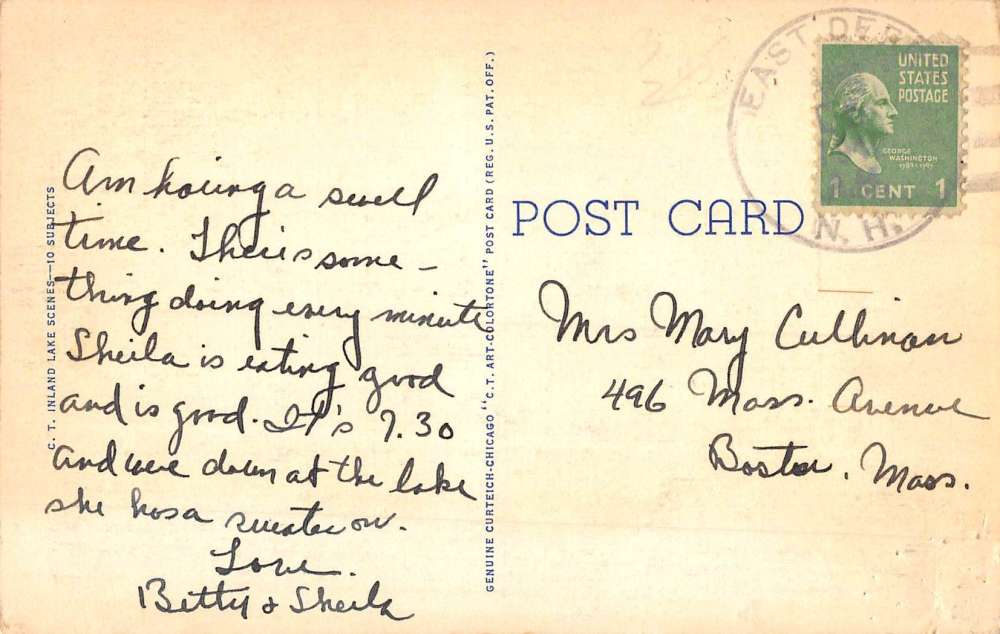 Am having a swell
time. Theris some -
thing doing every minute
Sheila is eating good
and is good. It's 7.30
and were down at the lake
she has a sweater on.
Love.
Betty & Sheila
C. T. INLAND LAKE SCENES—10 SUBJECTS
GENUINE CURTEICH-CHICAGO "C. T. ART-COLORTONE" POST CARD (REG. U. S. PAT. OFF.)
POST CARD
EAST DE
N. H.
UNITED
STATES
POSTAGE
GEORGE
WASHINGTON
1 CENT 1
Mrs Mary Cullinan
496 Mass. Avenue
Boston, Mass.